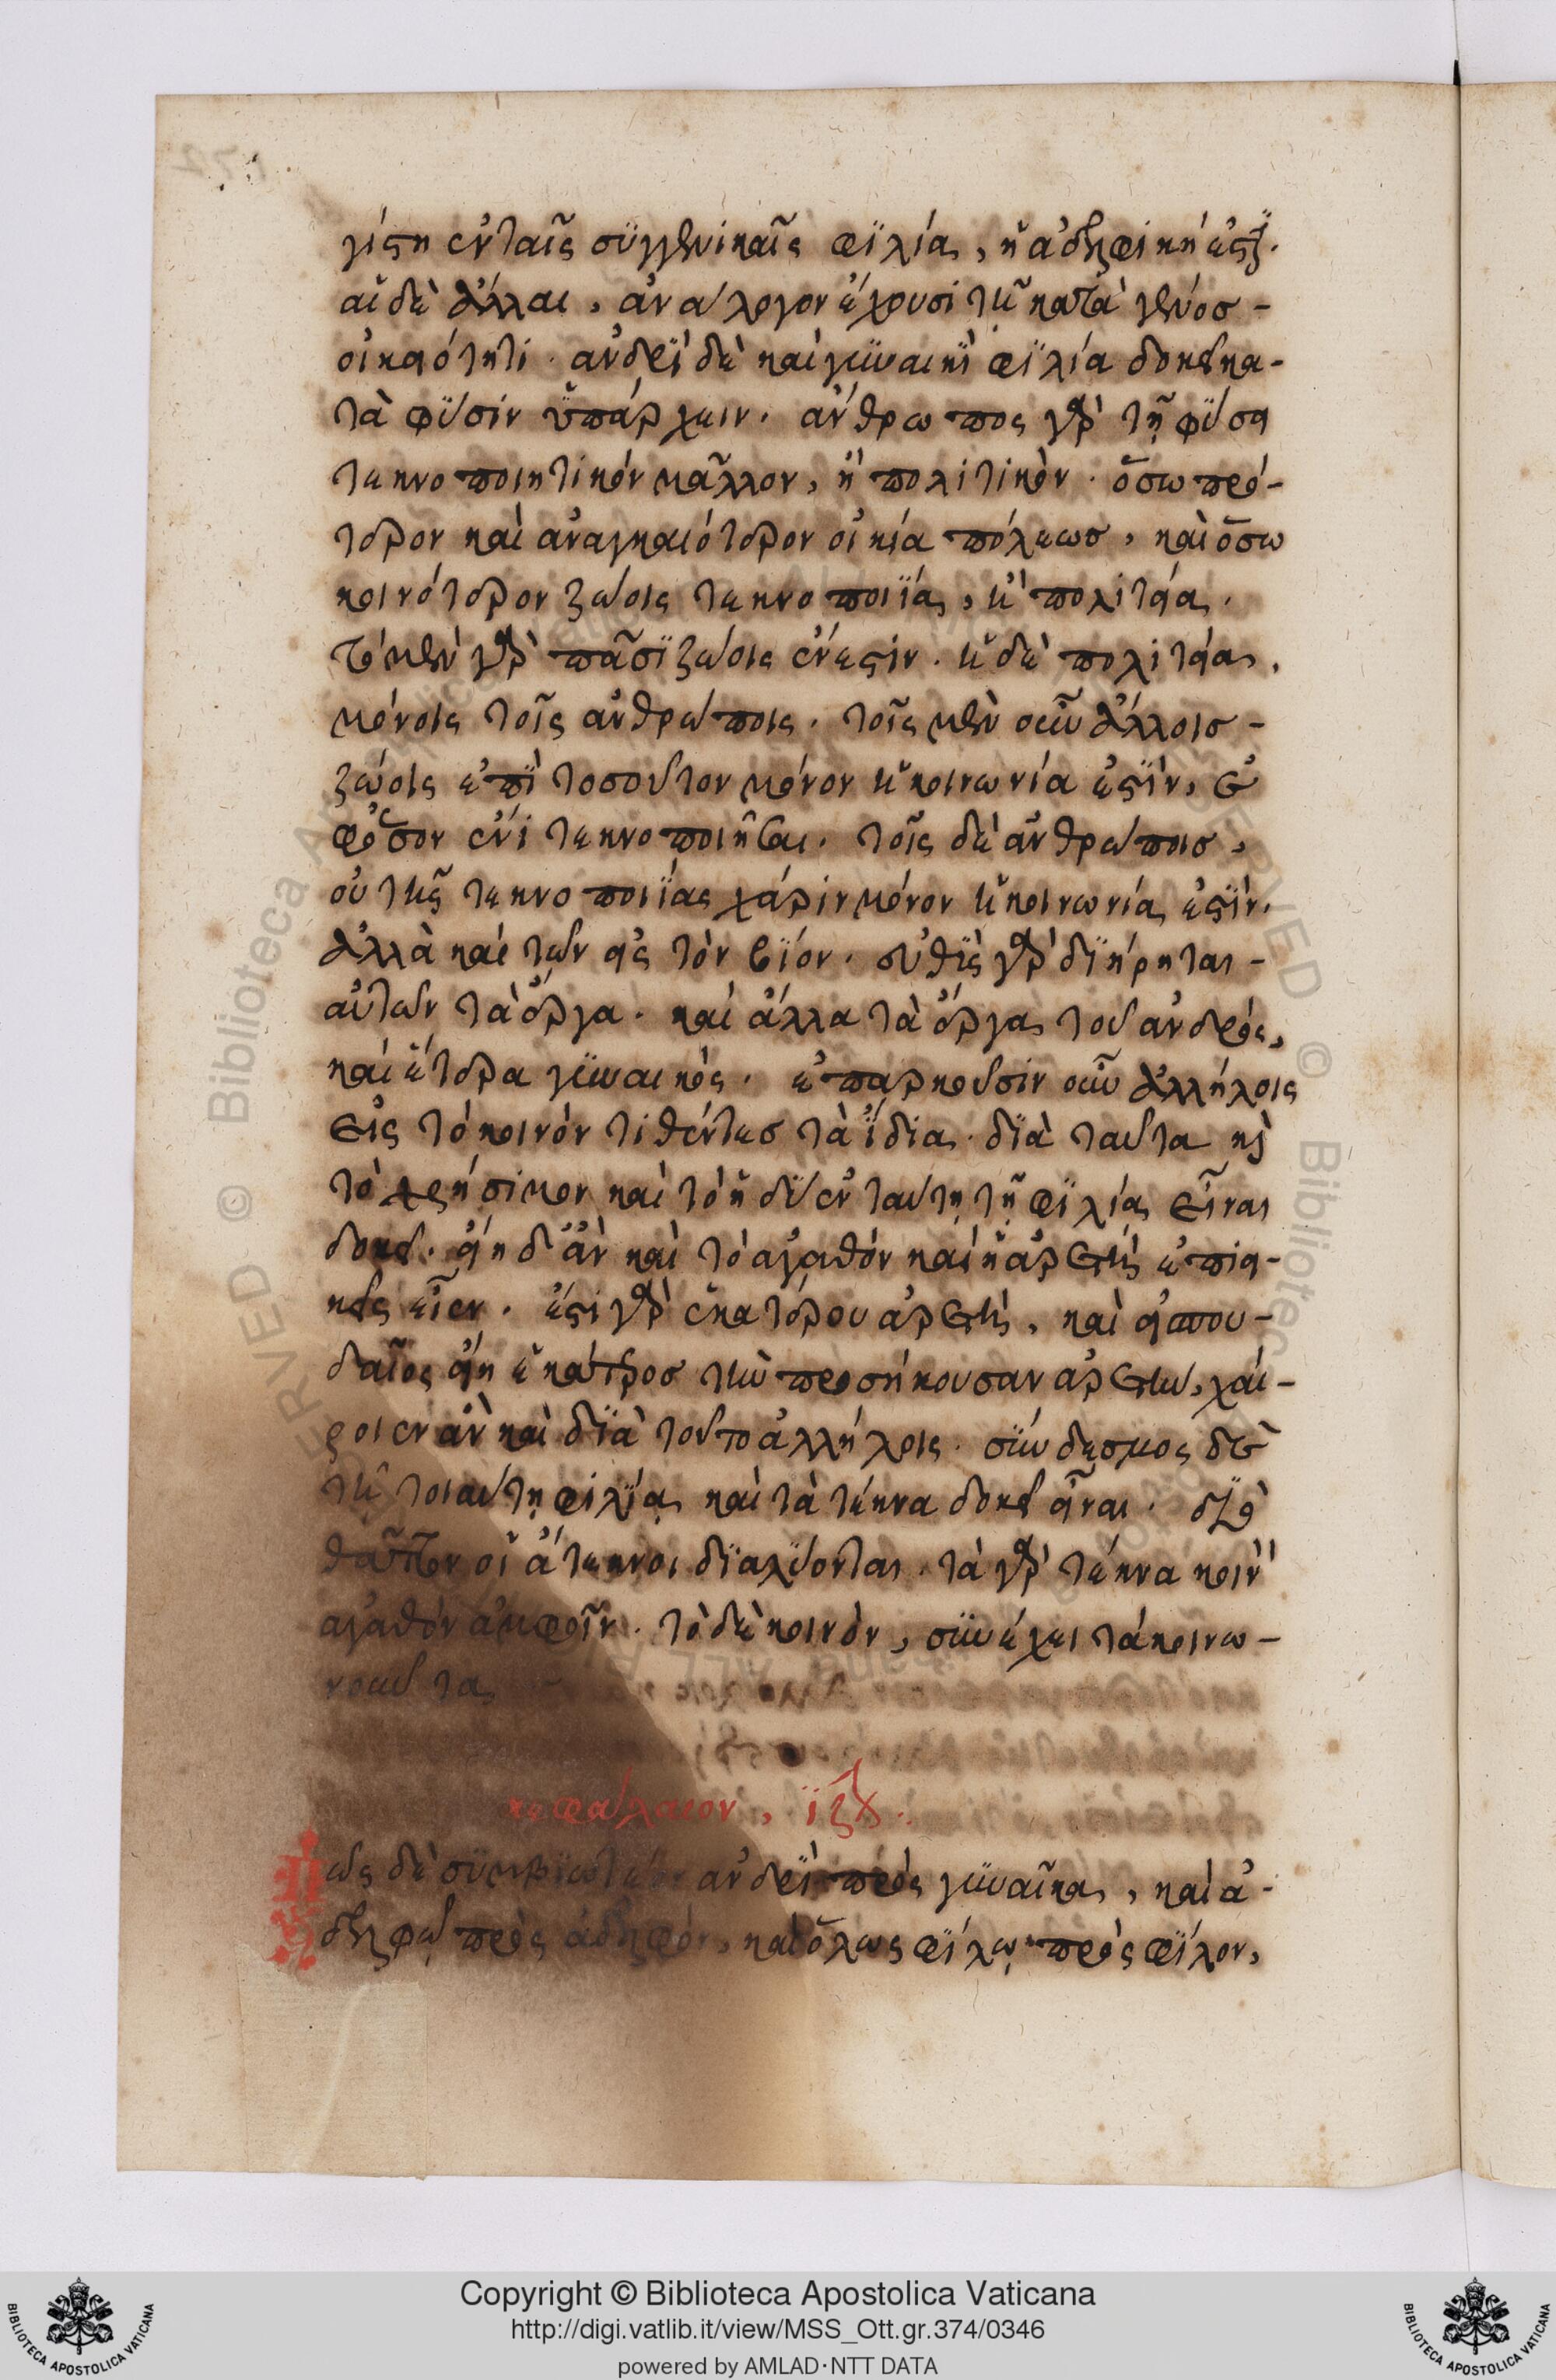 γίστη ἐν ταῖς συγγενικαῖς φιλία, ἡ ἀδελφική ἐστι.
αἱ δὲ ἄλλαι, ἀνάλογον ἔχουσι τῇ κατὰ γένος -
οἰκειότητι. ἀνδρὶ δὲ καὶ γυναικὶ φιλία δοκεῖ κα-
τὰ φύσιν ὑπάρχειν. ἄνθρωπος γὰρ τῇ φύσει
τεκνοποιητικόν μᾶλλον, ἢ πολιτικόν. ὅσω πρό-
τερον καὶ ἀναγκαιότερον οἰκία πόλεως, καὶ ὅσω
κοινότερον ζώοις τεκνοποιΐα, ἢ πολιτεία.
τὸ μὲν γὰρ πᾶσι ζώοις ἔνεστιν. ἡ δὲ πολιτεία,
μόνοις τοῖς ἀνθρώποις. τοῖς μὲν οὖν ἄλλοις -
ζώοις ἐπὶ τοσοῦτον μόνον ἡ κοινωνία ἐστὶν, ἐ
φόσον ἐνὶ τεκνοποιῆσαι. τοῖς δὲ ἀνθρώποις,
οὐ τῆς τεκνοποιΐας χάριν μόνον ἡ κοινωνία ἐστὶν.
ἀλλὰ καὶ τῶν εἰς τὸν βίον. εὐθὺς γὰρ διῄρηται -
αὐτῶν τὰ ἔργα. καὶ ἄλλα τὰ ἔργα τοῦ ἀνδρός,
καὶ ἕτερα γυναικός. ἐπαρκοῦσιν οὖν ἀλλήλοις
εἰς τὸ κοινόν τιθέντες τὰ ἴδια. διὰ ταῦτα καὶ
τὸ χρήσιμον καὶ τὸ ἡδὺ ἐν ταύτῃ τῇ φιλίᾳ εἶναι
δοκεῖ. εἴη δ' ἂν καὶ τὸ ἀγαθόν καὶ ἡ ἀρετὴ ἐπιει-
κεῖς εἶεν. ἔστι γὰρ ἑκατέρου ἀρετὴ, καὶ εἰ σπου-
δαῖος εἴη ἑκάτερος τὴν προσήκουσαν ἀρετὴν, χαί-
ροιεν ἂν καὶ διὰ τοῦτο ἀλλήλοις. σύνδεσμος δὲ
τῇ τοιαύτῃ φιλίᾳ καὶ τὰ τέκνα δοκεῖ εἶναι. διὸ
θᾶττον οἱ ἄτεκνοι διαλύονται. τὰ γὰρ τέκνα κοινὸν
ἀγαθὸν ἀμφοῖν. τὸ δὲ κοινὸν, συνέχει τὰ κοινω -
νοῦντα
κεφάλαιον, ιζον.
Πῶς δὲ συμβιωτέον ἀνδρὶ πρὸς γυναῖκα, καὶ ἀ-
δελφῷ πρὸς ἀδελφόν, καὶ ὅλως φίλῳ πρὸς φίλον,
Copyright © Biblioteca Apostolica Vaticana
http://digi.vatlib.it/view/MSS_Ott.gr.374/0346
powered by AMLAD·NTT DATA